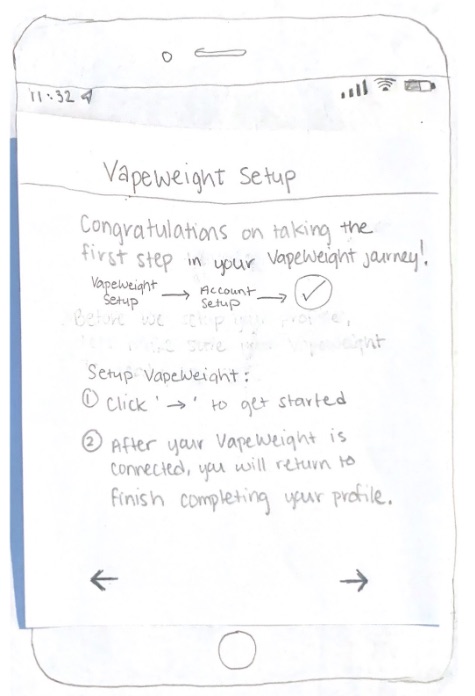 11:32
VapeWeight Setup
Congratulations on taking the
first step in your VapeWeight journey!
VapeWeight Setup → Account Setup → ✓
Before we setup your profile,
make sure your VapeWeight
Setup VapeWeight:
① Click '→' to get started
② After your VapeWeight is
connected, you will return to
finish completing your profile.
← →